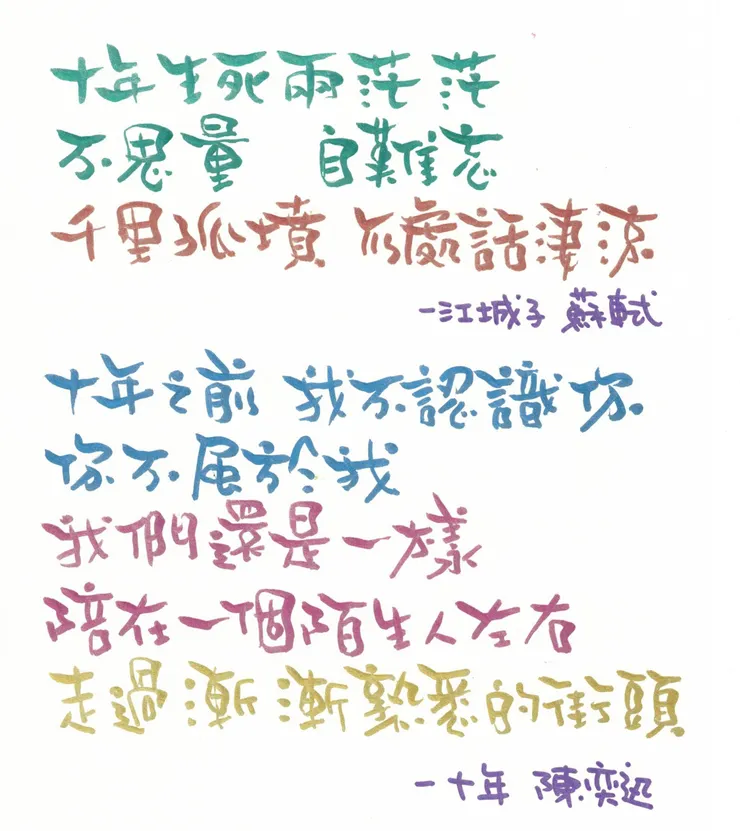 十年生死兩茫茫
不思量　自難忘
千里孤墳 何處話淒涼
一江城子 蘇軾
十年之前 我不認識你
你不属於我
我們還是一樣
陪在一個陌生人左右
走過漸漸熟悉的街頭
一十年 陳奕迅